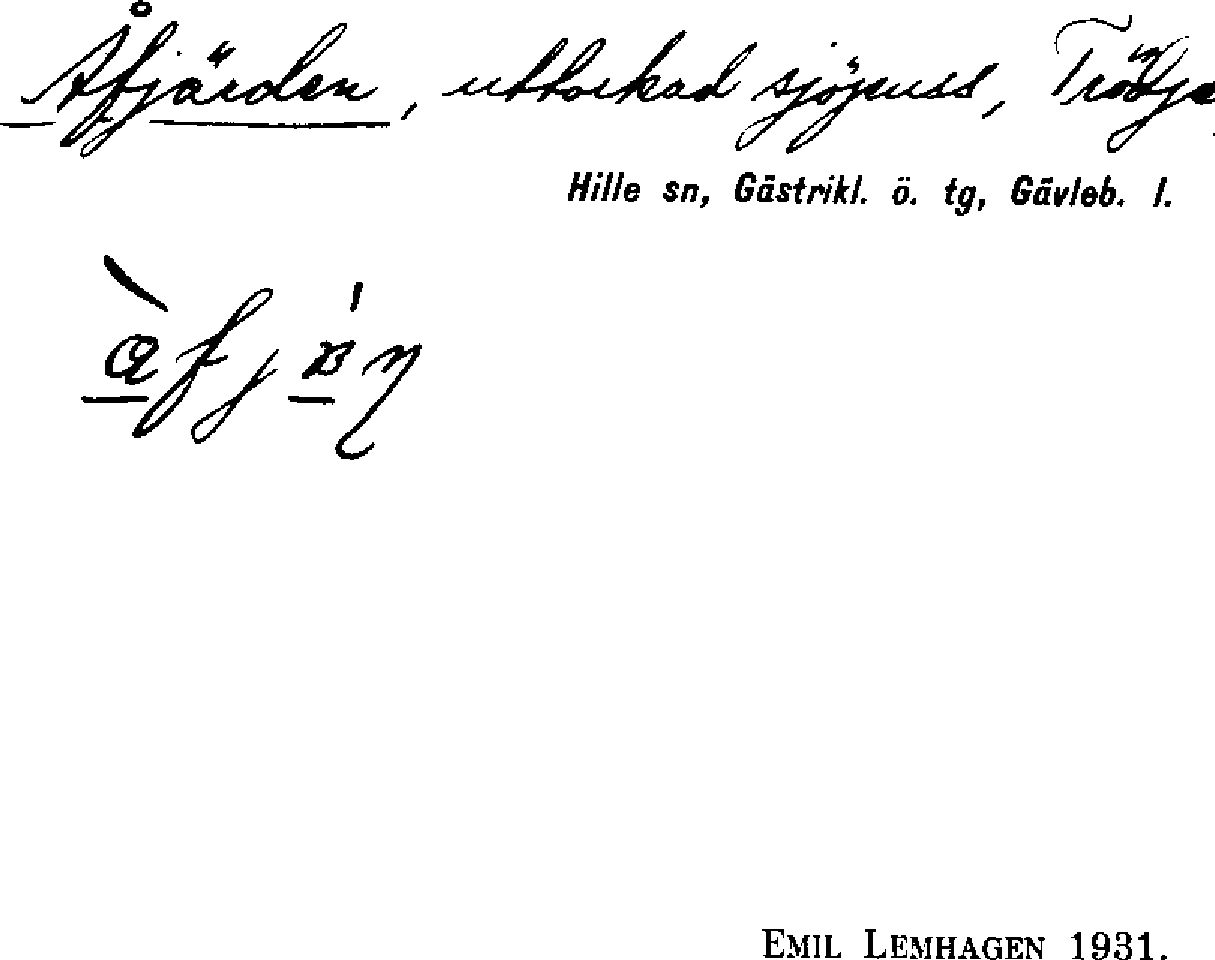 Åfjärden, uttorkad Trödje
Hille sn, Gästrikl. ö. tg, Gävleb. l.
EMIL LEMHAGEN 1931.